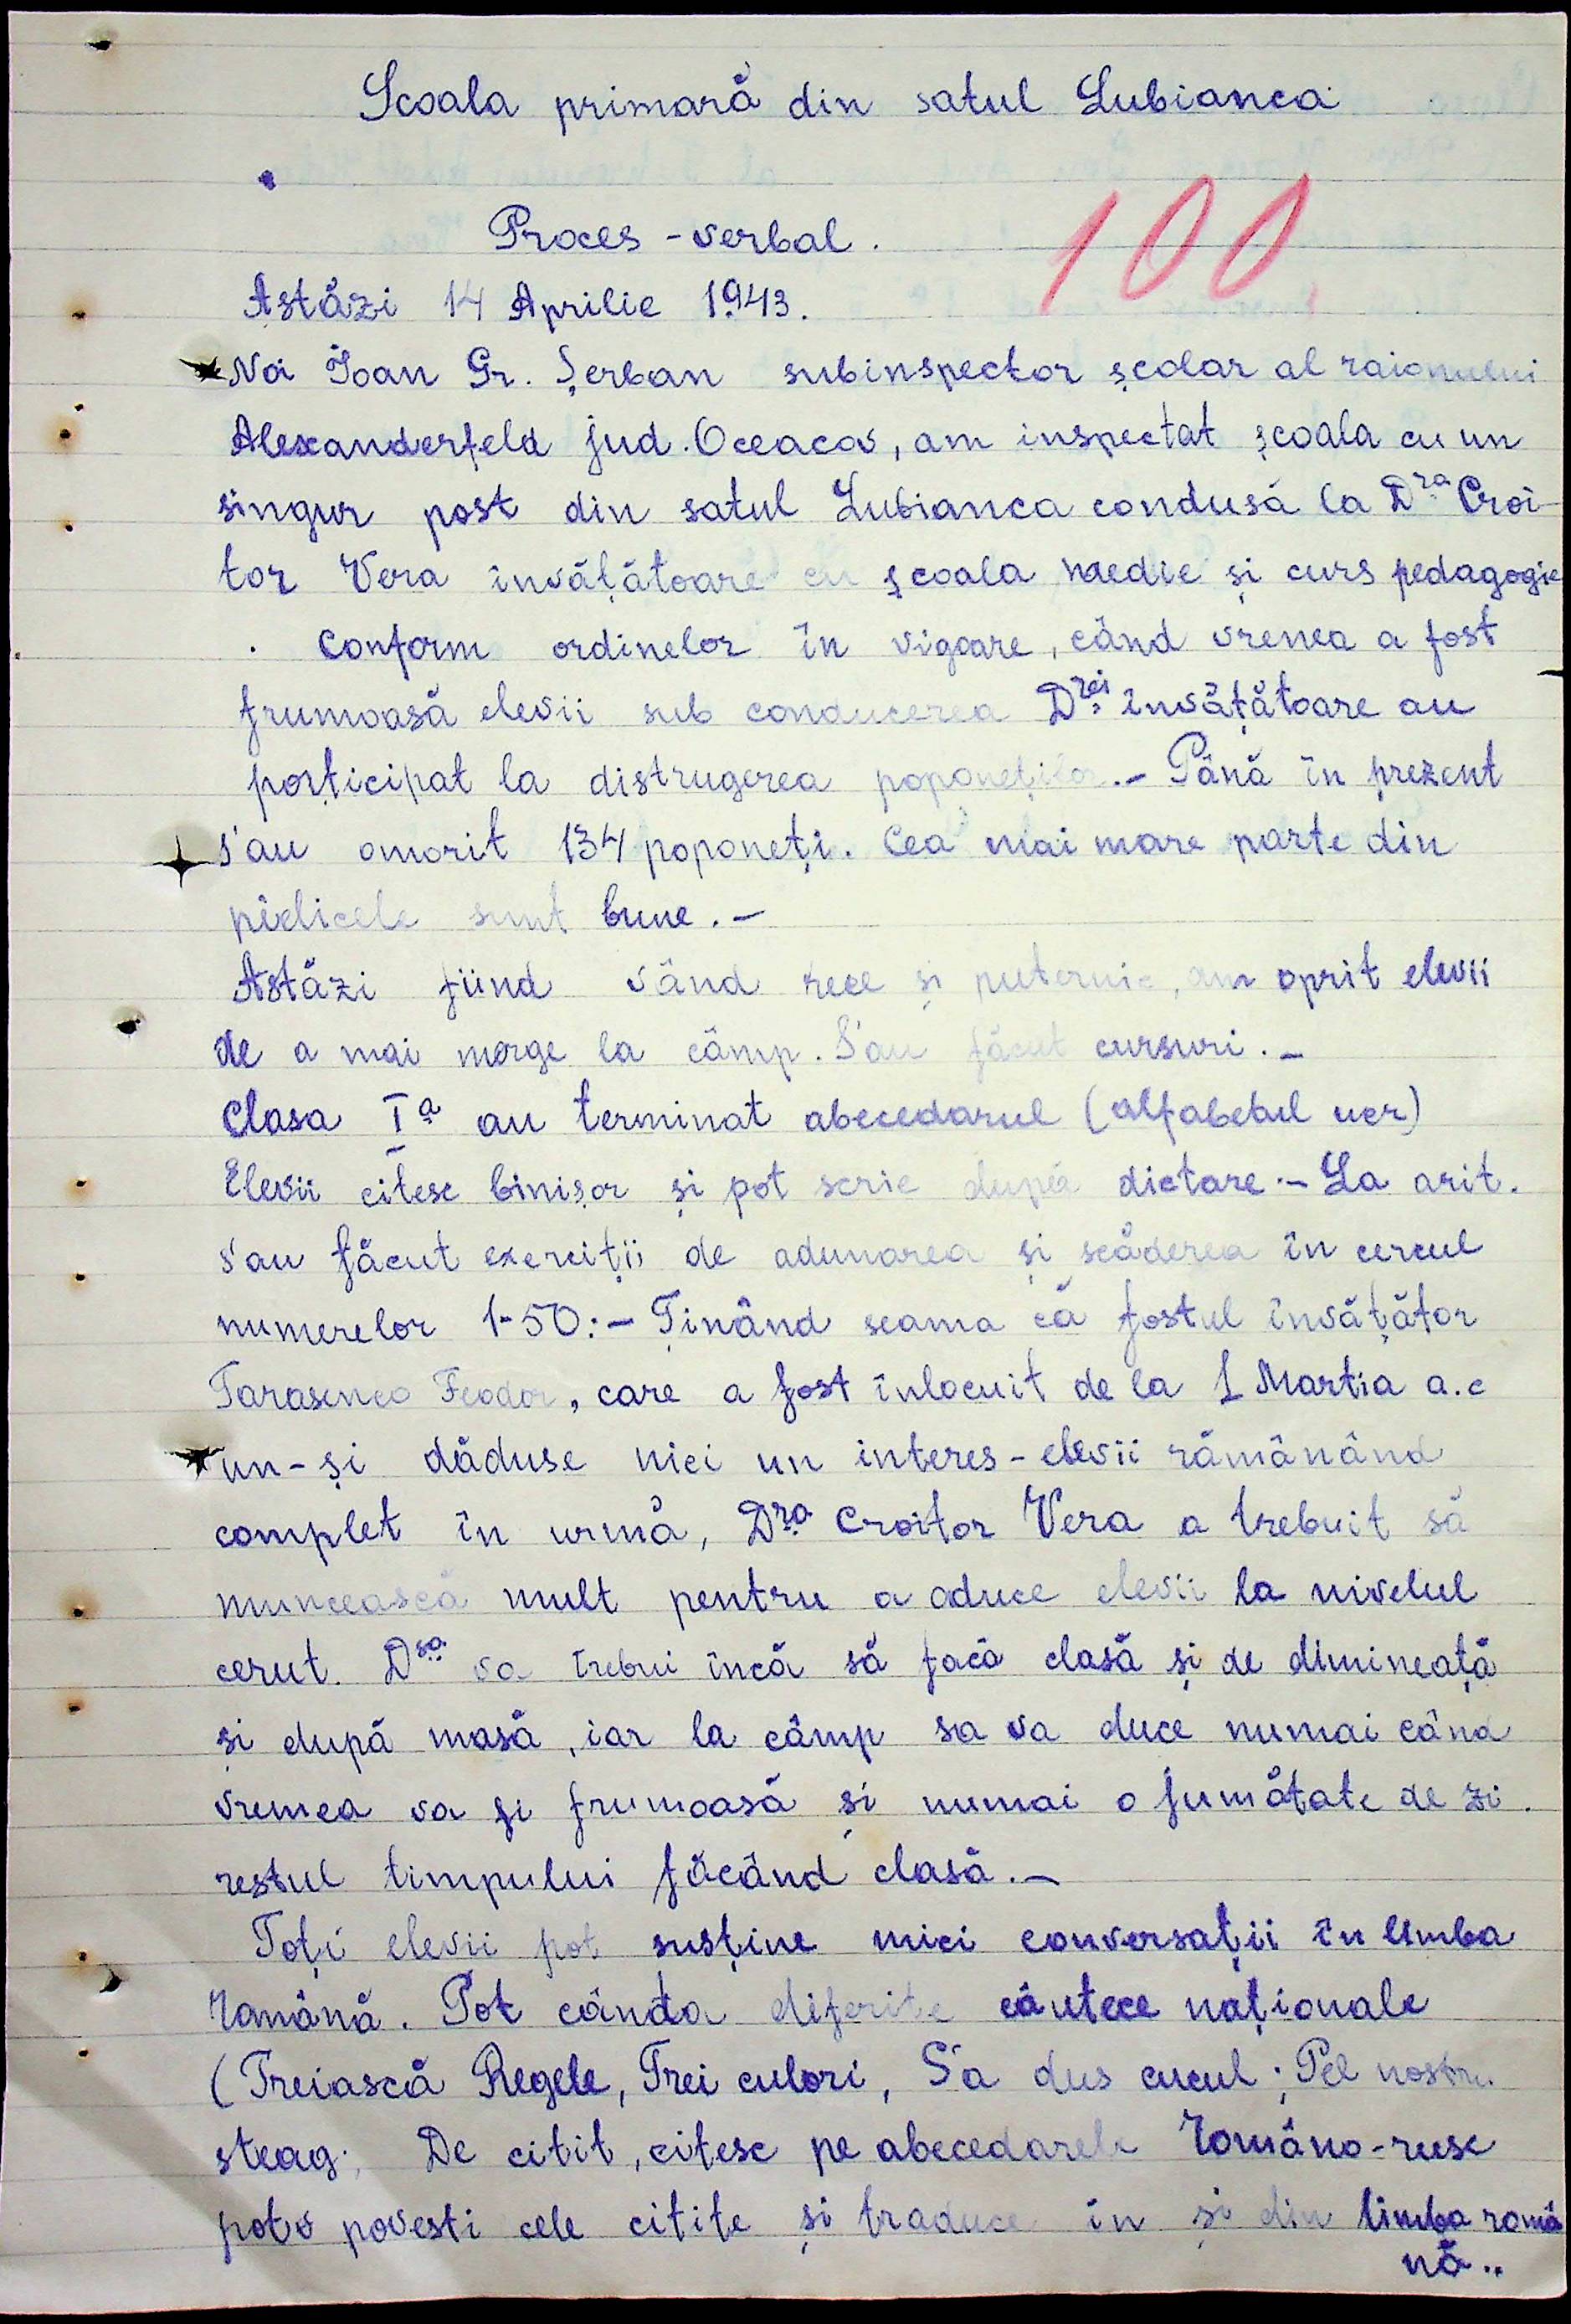 Scoala primară din satul Lubianca
100
Proces-verbal.
Astăzi 14 Aprilie 1943.
Noi Ioan Gr. Șerban subinspector școlar al raionului
Alexanderfeld jud. Oceacov, am inspectat școala cu un
singur post din satul Lubianca condusă la Dra Croi-
tor Vera învățătoare cu școala medie și curs pedagogic
Conform ordinelor în vigoare, când vremea a fost
frumoasă elevii sub conducerea Drei învățătoare au
participat la distrugerea poponeților.- Până în prezent
s'au omorit 134 poponeți. Cea mai mare parte din
pielicele sunt bune.-
Astăzi fiind vând rece și puternic, am oprit elevii
de a mai merge la câmp. S'au făcut cursuri.-
Clasa Ia au terminat abecedarul (alfabetul ucr)
Elevii citesc binișor și pot scrie după dictare.- La arit.
s'au făcut exerciții de adunarea și scăderea în cercul
numerelor 1-50:- Ținând seama că fostul învățător
Tarasenco Feodor, care a fost înlocuit de la 1 Martia a.c
un-și dăduse nici un interes-elevii rămânând
complet în urmă, Dra Croitor Vera a trebuit să
muncească mult pentru a aduce elevii la nivelul
cerut. Dsa va trebui încă să facă clasă și de dimineață
și după masă, iar la câmp sa va duce numai când
vremea va fi frumoasă și numai o jumătate de zi.
restul timpului făcând clasă.-
Toți elevii pot susține mici conversații în limba
română. Pot cânda diferite cântece naționale
(Treiască Regele, Trei culori, S'a dus cucul; Pel nostru
steag; De citit, citesc pe abecedarele româno-rusc
potv povesti cele citite și traduce în și din limba româ
nă..